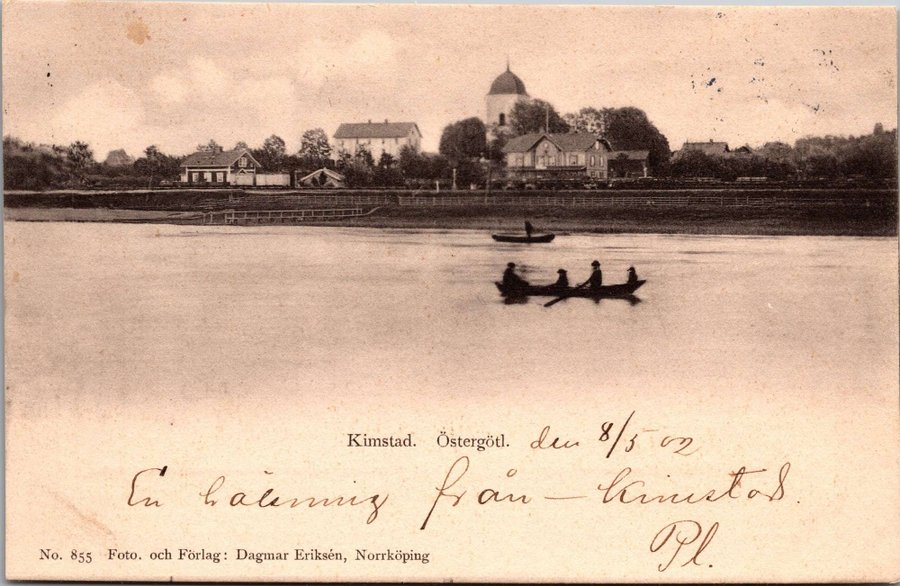 Kimstad. Östergötl. den 8/5 02
En hälsning från – Kimstad.
Pl.
No. 855 Foto. och Förlag: Dagmar Eriksén, Norrköping